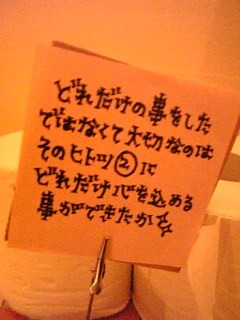 どれだけの事をした
でわなくて大切なのは
そのヒトツ②に
どれだけ心を込める
事ができたか☆